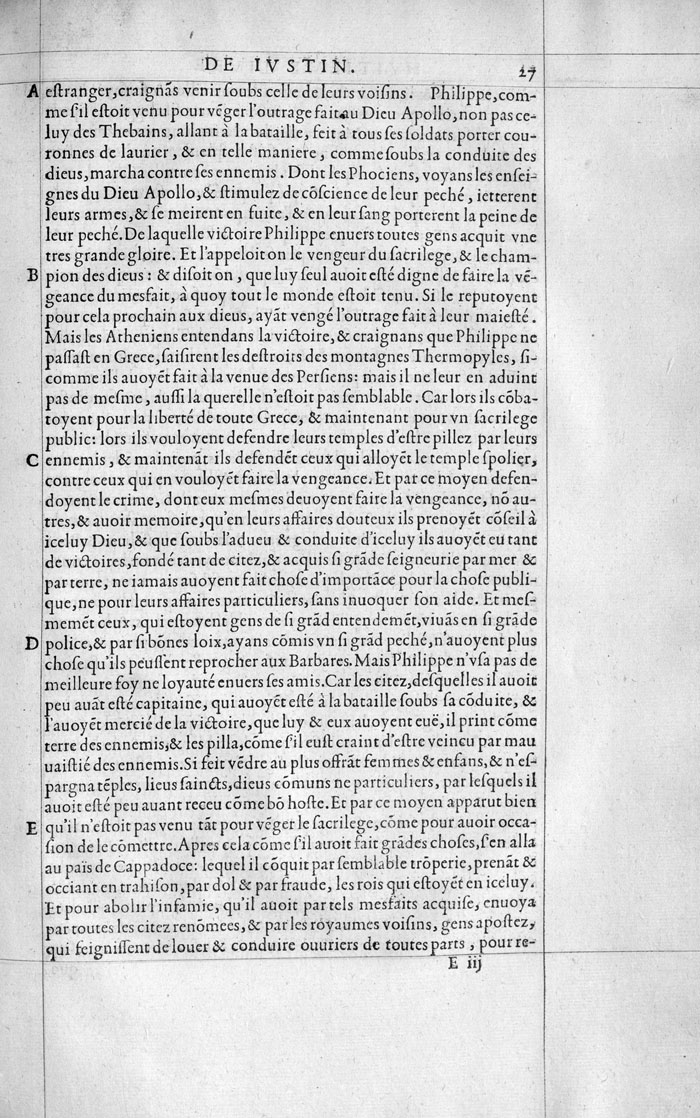 DE IVSTIN. 27
A eſtranger,craignãs venir ſoubs celle de leurs voiſins. Philippe,com-
me s'il eſtoit venu pour vẽger l'outrage fait au Dieu Apollo,non pas ce-
luy des Thebains, allant à la bataille, feit à tous ſes ſoldats porter cou-
ronnes de laurier, & en telle maniere, comme ſoubs la conduite des
dieus,marcha contre ſes ennemis. Dont les Phociens, voyans les enſei-
gnes du Dieu Apollo,& ſtimulez de cõſcience de leur peché, ietterent
leurs armes,& ſe meirent en fuite, & en leur ſang porterent la peine de
leur peché.De laquelle victoire Philippe enuers toutes gens acquit vne
tres grande gloire. Et l'appeloit on le vengeur du ſacrilege,& le cham-
B pion des dieus: & diſoit on, que luy ſeul auoit eſté digne de faire la vẽ-
geance du mesfait, à quoy tout le monde eſtoit tenu. Si le reputoyent
pour cela prochain aux dieus, ayãt vengé l'outrage fait à leur maieſté.
Mais les Atheniens entendans la victoire,& craignans que Philippe ne
paſſaſt en Grece,ſaiſirent les deſtroits des montagnes Thermopyles, ſi-
comme ils auoyẽt fait à la venue des Perſiens: mais il ne leur en aduint
pas de meſme, auſſi la querelle n'eſtoit pas ſemblable. Car lors ils cõba-
toyent pour la liberté de toute Grece, & maintenant pour vn ſacrilege
public: lors ils vouloyent defendre leurs temples d'eſtre pillez par leurs
C ennemis, & maintenãt ils defendẽt ceux qui alloyẽt le temple ſpolier,
contre ceux qui en vouloyẽt faire la vengeance. Et par ce moyen defen-
doyent le crime, dont eux meſmes deuoyent faire la vengeance, nõ au-
tres,& auoir memoire,qu'en leurs affaires douteux ils prenoyẽt cõſeil à
iceluy Dieu,& que ſoubs l'adueu & conduite d'iceluy ils auoyẽt eu tant
de victoires,fondé tant de citez,& acquis ſi grãde ſeigneurie par mer &
par terre, ne iamais auoyent fait choſe d'importãce pour la choſe publi-
que,ne pour leurs affaires particuliers, ſans inuoquer ſon aide. Et meſ-
memẽt ceux, qui eſtoyent gens de ſi grãd entendemẽt,viuãs en ſi grãde
D police,& par ſi bõnes loix,ayans cõmis vn ſi grãd peché,n'auoyent plus
choſe qu'ils peuſſent reprocher aux Barbares. Mais Philippe n'vſa pas de
meilleure foy ne loyauté enuers ſes amis.Car les citez,deſquelles il auoit
peu auãt eſté capitaine, qui auoyẽt eſté à la bataille ſoubs ſa cõduite, &
l'auoyẽt mercié de la victoire,que luy & eux auoyent euë,il print cõme
terre des ennemis,& les pilla,cõme s'il euſt craint d'eſtre veincu par mau
uaiſtié des ennemis.Si feit vẽdre au plus offrãt femmes & enfans,& n'eſ-
pargna tẽples, lieus ſaincts,dieus cõmuns ne particuliers, par leſquels il
auoit eſté peu auant receu cõme bõ hoſte. Et par ce moyen apparut bien
E qu'il n'eſtoit pas venu tãt pour vẽger le ſacrilege,cõme pour auoir occa-
ſion de le cõmettre.Apres cela cõme s'il auoit fait grãdes choſes,s'en alla
au païs de Cappadoce: lequel il cõquit par ſemblable trõperie, prenãt &
occiant en trahiſon,par dol & par fraude, les rois qui eſtoyẽt en iceluy.
Et pour abolir l'infamie, qu'il auoit par tels mesfaits acquiſe, enuoya
par toutes les citez renõmees,& par les royaumes voiſins, gens apoſtez,
qui feigniſſent de louer & conduire ouuriers de toutes parts, pour re-
E iij